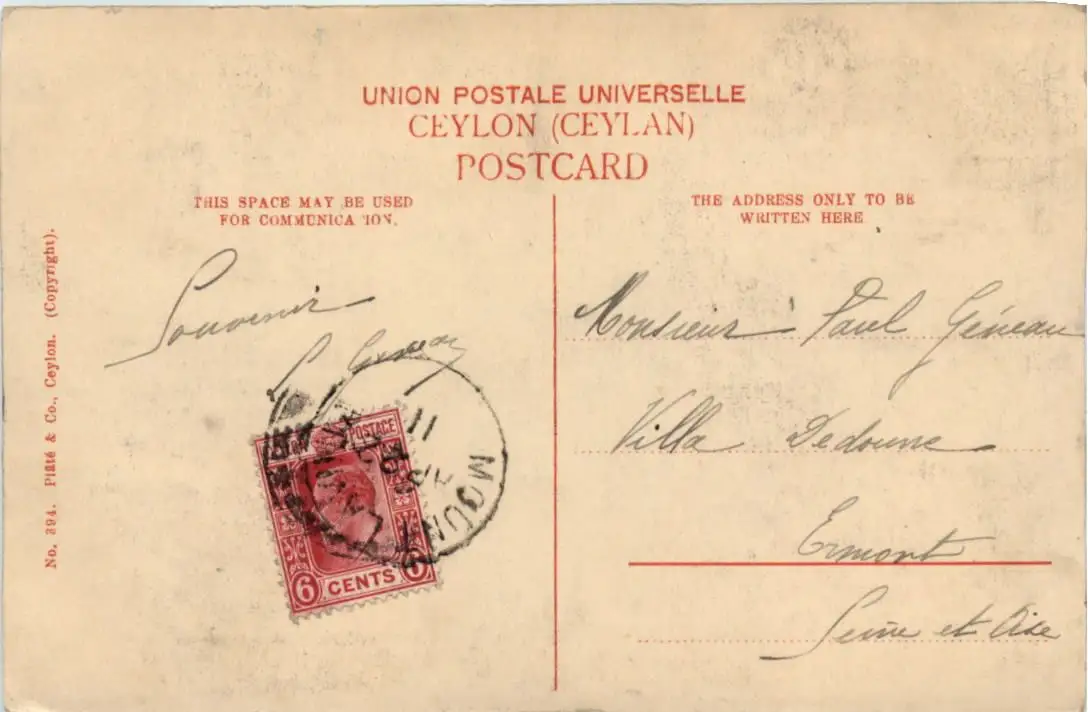 UNION POSTALE UNIVERSELLE
CEYLON (CEYLAN)
POSTCARD
THIS SPACE MAY BE USED
FOR COMMUNICA ION.
THE ADDRESS ONLY TO BE
WRITTEN HERE
No. 394. Plâté & Co., Ceylon. (Copyright).
Souvenir
Geneau
POSTAGE
6 CENTS 6
MOUNT LAVINIA
11
AP
Monsieur Paul Géneau
Villa
Ermont
Seine et Oise